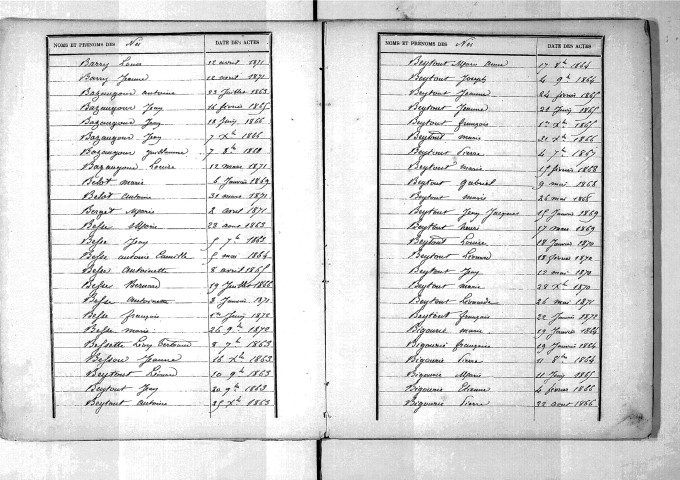 NOMS ET PRENOMS DES Nés DATE DES ACTES
Barry Louis 12 avril 1871
Barry Jeanne 12 avril 1871
Bazaugour antoine 23 Juillet 1863
Bazaugour Jeay 16 février 1865
Bazaugour Jeay 18 Juin 1866
Bazaugour Jeay 7 Xbre 1866
Bazaugour guillaume 7 8bre 1868
Bazaugour Louise 12 mars 1871
Belot marie 6 Janvier 1869
Belot Antoine 31 mars 1871
Berget Marie 2 avril 1871
Besse Marie 23 aout 1863
Besse Jeay 5 7bre 1863
Besse antoine Camille 5 mai 1864
Besse Antoinette 8 avril 1865
Besse Bernard 19 Juillet 1866
Besse Antoinette 3 Janvier 1871
Besse françois 1er Juin 1872
Besse marie 26 9bre 1872
Bessette Louis 8 7bre 1863
Besson Jeanne 16 Xbre 1863
Beytout Léonard 10 9bre 1863
Beytout Jeay 20 9bre 1863
Beytout Antoine 25 Xbre 1863
NOMS ET PRENOMS DES Nés DATE DES ACTES
Beytout Marie Anne 17 8bre 1864
Beytout Joseph 4 9bre 1864
Beytout Jeanne 24 février 1865
Beytout Jeanne 21 Juin 1865
Beytout françois 1er Xbre 1865
Beytout marie 21 Xbre 1866
Beytout Pierre 4 7bre 1867
Beytout marie 15 février 1868
Beytout gabriel 9 mai 1868
Beytout marie 26 mai 1868
Beytout Jeay Jacques 15 Janvier 1869
Beytout henri 17 mars 1869
Beytout Louise 18 Janvier 1870
Beytout Léonard 18 février 1870
Beytout Jeay 12 mai 1870
Beytout marie 28 Xbre 1870
Beytout Léonarde 26 mai 1871
Beytout françois 22 Janvier 1872
Bigourie marie 19 Janvier 1864
Bigourie françoise 19 Janvier 1864
Bigourie Pierre 11 8bre 1864
Bigourie Marie 11 Juin 1865
Bigourie Etienne 4 février 1866
Bigourie Pierre 22 aout 1866